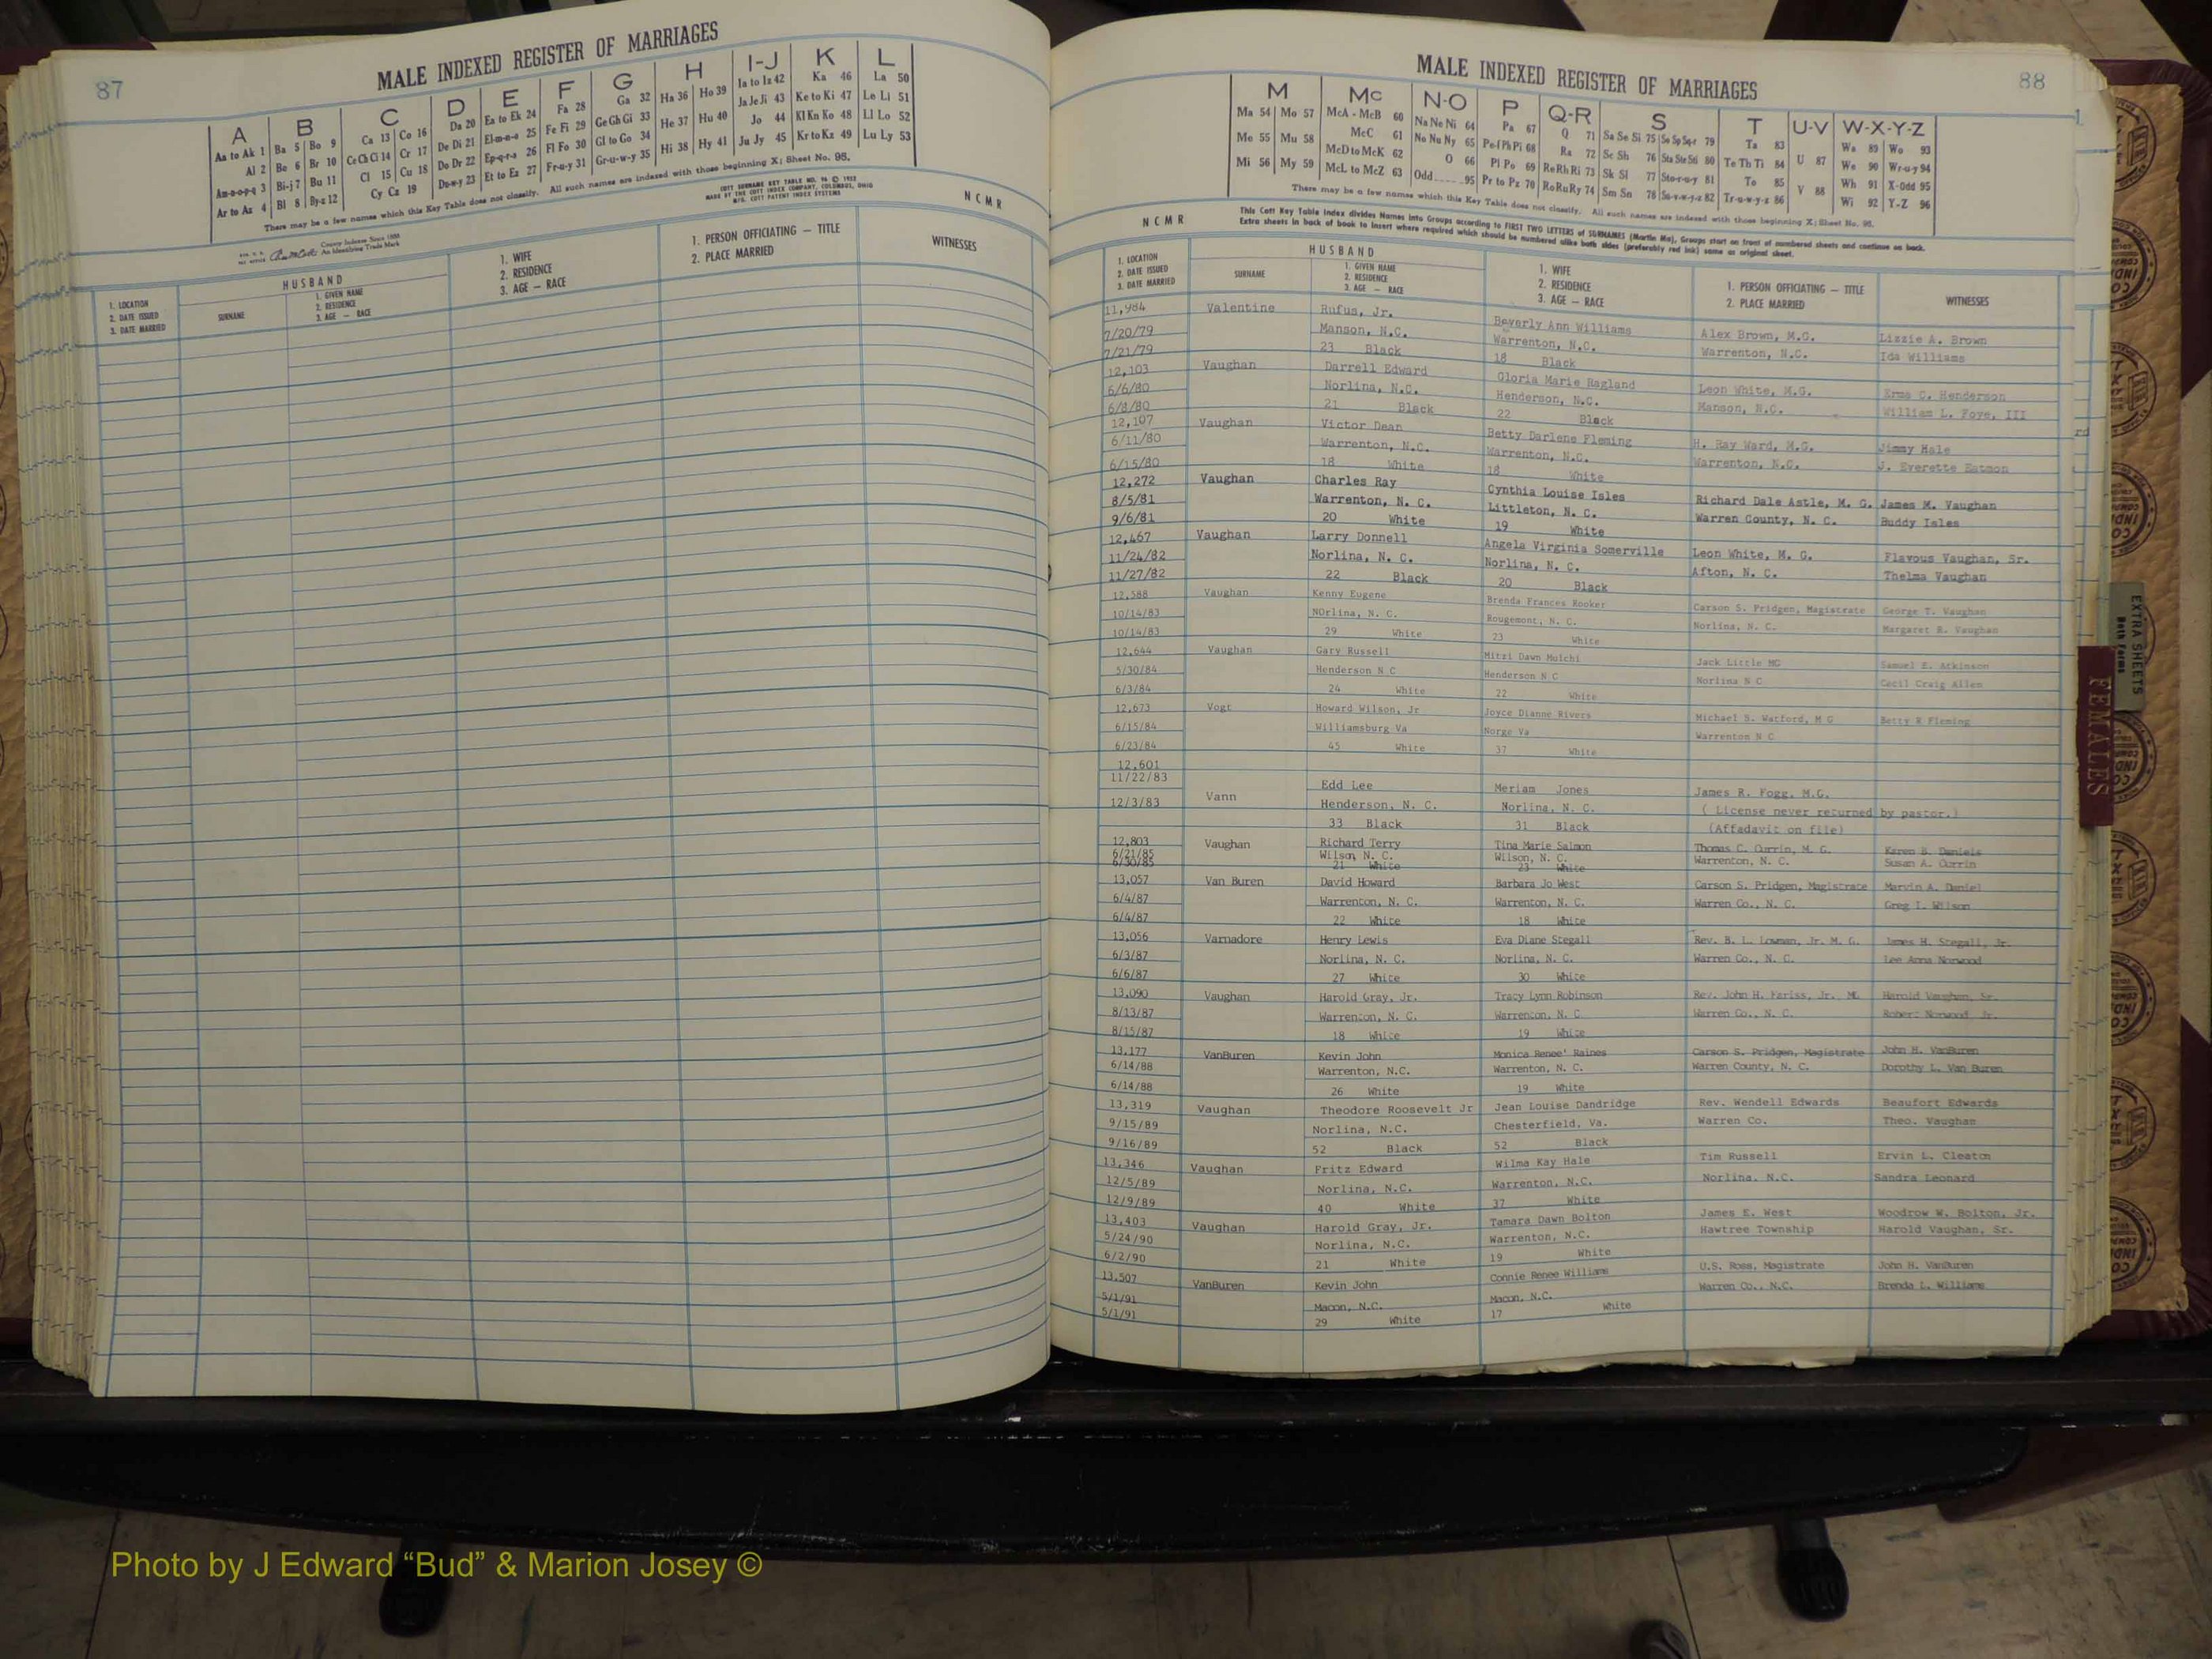 87
MALE INDEXED REGISTER OF MARRIAGES
A B C D E F G H I-J K L
Aa to Ak 1 Ba 5 Bo 9 Ca 13 Co 16 Da 20 Ea to Ek 24 Fa 28 Ga 32 Ha 36 Ho 39 Ia to Iz 42 Ka 46 La 50
Al 2 Be 6 Br 10 Ce Ch Ci 14 Cr 17 De Di 21 El-m-n-o 25 Fe Fi 29 Ge Gh Gi 33 He 37 Hu 40 Ja Je Ji 43 Ke to Ki 47 Le Li 51
An-o-p-q 3 Bi-j 7 Bu 11 Cl 15 Cu 18 Do Dr 22 Ep-q-r-s 26 Fl Fo 30 Gl to Go 34 Hi 38 Hy 41 Jo 44 Kl Kn Ko 48 Ll Lo 52
Ar to Az 4 Bl 8 By-z 12 Cy Cz 19 Du-w-y 23 Et to Ez 27 Fr-u-y 31 Gr-u-w-y 35 Ju Jy 45 Kr to Kz 49 Lu Ly 53
There may be a few names which this Key Table does not classify. All such names are indexed with those beginning X; Sheet No. 95.
COTT SURNAME KEY TABLE NO. 96 © 1952
MADE BY THE COTT INDEX COMPANY, COLUMBUS, OHIO
MFG. COTT PATENT INDEX SYSTEMS
N C M R
County Indexes Since 1888
An Identifying Trade Mark
HUSBAND
1. LOCATION
2. DATE ISSUED
3. DATE MARRIED
SURNAME
1. GIVEN NAME
2. RESIDENCE
3. AGE — RACE
1. WIFE
2. RESIDENCE
3. AGE — RACE
1. PERSON OFFICIATING — TITLE
2. PLACE MARRIED
WITNESSES
88
MALE INDEXED REGISTER OF MARRIAGES
M Mc N-O P Q-R S T U-V W-X-Y-Z
Ma 54 Mo 57 McA - McB 60 Na Ne Ni 64 Pa 67 Q 71 Sa Se Si 75 So Sp Sq-r 79 Ta 83 U 87 Wa 89 Wo 93
Me 55 Mu 58 McC 61 No Nu Ny 65 Pe-f Ph Pi 68 Ra 72 Sc Sh 76 Sta Ste Sti 80 Te Th Ti 84 V 88 We 90 Wr-u-y 94
Mi 56 My 59 McD to McK 62 O 66 Pl Po 69 Re Rh Ri 73 Sk Sl 77 Sto-r-u-y 81 To 85 Wh 91 X-Odd 95
McL to McZ 63 Odd 95 Pr to Pz 70 Ro Ru Ry 74 Sm Sn 78 Su-v-w-y-z 82 Tr-u-w-y-z 86 Wi 92 Y-Z 96
There may be a few names which this Key Table does not classify. All such names are indexed with those beginning X; Sheet No. 95.
N C M R
This Cott Key Table Index divides Names into Groups according to FIRST TWO LETTERS of SURNAMES (Martin Ma), Groups start on front of numbered sheets and continue on back.
Extra sheets in back of book to insert where required which should be numbered alike both sides (preferably red ink) same as original sheet.
HUSBAND
1. LOCATION
2. DATE ISSUED
3. DATE MARRIED
SURNAME
1. GIVEN NAME
2. RESIDENCE
3. AGE — RACE
1. WIFE
2. RESIDENCE
3. AGE — RACE
1. PERSON OFFICIATING — TITLE
2. PLACE MARRIED
WITNESSES
11,984 Valentine Rufus, Jr. Beverly Ann Williams Alex Brown, M.G. Lizzie A. Brown
7/20/79 Manson, N.C. Warrenton, N.C. Warrenton, N.C. Ida Williams
7/21/79 23 Black 18 Black
12,103 Vaughan Darrell Edward Gloria Marie Ragland Leon White, M.G. Erma C. Henderson
6/6/80 Norlina, N.C. Henderson, N.C. Manson, N.C. William L. Foye, III
6/8/80 21 Black 22 Black
12,107 Vaughan Victor Dean Betty Darlene Fleming H. Ray Ward, M.G. Jimmy Hale
6/11/80 Warrenton, N.C. Warrenton, N.C. Warrenton, N.C. J. Everette Eatmon
6/15/80 18 White 18 White
12,272 Vaughan Charles Ray Cynthia Louise Isles Richard Dale Astle, M. G. James M. Vaughan
8/5/81 Warrenton, N. C. Littleton, N. C. Warren County, N. C. Buddy Isles
9/6/81 20 White 19 White
12,467 Vaughan Larry Donnell Angela Virginia Somerville Leon White, M. G. Flavous Vaughan, Sr.
11/24/82 Norlina, N. C. Norlina, N. C. Afton, N. C. Thelma Vaughan
11/27/82 22 Black 20 Black
12,588 Vaughan Kenny Eugene Brenda Frances Hooker Carson S. Pridgen, Magistrate George T. Vaughan
10/14/83 NOrlina, N. C. Rougemont, N. C. Norlina, N. C. Margaret R. Vaughan
10/14/83 29 White 23 White
12,644 Vaughan Gary Russell Mitzi Dawn Mulchi Jack Little MG Samuel E. Atkinson
5/30/84 Henderson N C Henderson N C Norlina N C Cecil Craig Allen
6/3/84 24 White 22 White
12,673 Vogt Howard Wilson, Jr Joyce Dianne Rivers Michael S. Watford, M G Betty R Fleming
6/15/84 Williamsburg Va Norge Va Warrenton N C
6/23/84 45 White 37 White
12,601
11/22/83
12/3/83 Vann Edd Lee Meriam Jones James R. Fogg, M.G.
Henderson, N. C. Norlina, N. C. ( License never returned by pastor.)
33 Black 31 Black (Affadavit on file)
12,803 Vaughan Richard Terry Tina Marie Salmon Thomas C. Currin, M. G. Karen B. Daniels
6/21/85 Wilson, N. C. Wilson, N. C. Warrenton, N. C. Susan A. Currin
6/30/85 21 White 23 White
13,057 Van Buren David Howard Barbara Jo West Carson S. Pridgen, Magistrate Marvin A. Daniel
6/4/87 Warrenton, N. C. Warrenton, N. C. Warren Co., N. C. Greg I. Wilson
6/4/87 22 White 18 White
13,056 Varnadore Henry Lewis Eva Diane Stegall Rev. B. L. Lowman, Jr. M. G. James H. Stegall, Jr.
6/3/87 Norlina, N. C. Norlina, N. C. Warren Co., N. C. Lee Anna Norwood
6/6/87 27 White 30 White
13,090 Vaughan Harold Gray, Jr. Tracy Lynn Robinson Rev. John H. Fariss, Jr. MG Harold Vaughan, Sr.
8/13/87 Warrenton, N. C. Warrenton, N. C Warren Co., N. C. Robert Norwood Jr.
8/15/87 18 White 19 White
13,177 VanBuren Kevin John Monica Renee' Raines Carson S. Pridgen, Magistrate John H. VanBuren
6/14/88 Warrenton, N.C. Warrenton, N. C. Warren County, N. C. Dorothy L. Van Buren
6/14/88 26 White 19 White
13,319 Vaughan Theodore Roosevelt Jr Jean Louise Dandridge Rev. Wendell Edwards Beaufort Edwards
9/15/89 Norlina, N.C. Chesterfield, Va. Warren Co. Theo. Vaughan
9/16/89 52 Black 52 Black
13,346 Vaughan Fritz Edward Wilma Kay Hale Tim Russell Ervin L. Cleaton
12/5/89 Norlina, N.C. Warrenton, N.C. Norlina. N.C. Sandra Leonard
12/9/89 40 White 37 White
13,403 Vaughan Harold Gray, Jr. Tamara Dawn Bolton James E. West Woodrow W. Bolton, Jr.
5/24/90 Norlina, N.C. Warrenton, N.C. Hawtree Township Harold Vaughan, Sr.
6/2/90 21 White 19 White
13,507 VanBuren Kevin John Connie Renee Williams U.S. Ross, Magistrate John H. VanBuren
5/1/91 Macon, N.C. Macon, N.C. Warren Co., N.C. Brenda L. Williams
5/1/91 29 White 17 White
EXTRA SHEETS
Both Forms
FEMALES
Photo by J Edward “Bud” & Marion Josey ©